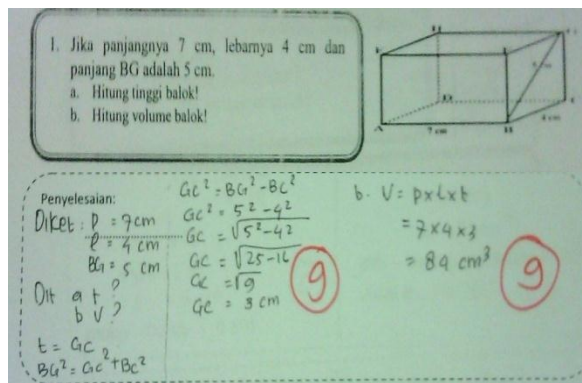 1. Jika panjangnya 7 cm, lebarnya 4 cm dan
panjang BG adalah 5 cm.
a. Hitung tinggi balok!
b. Hitung volume balok!
A
7 cm
B
4 cm
Penyelesaian:
Diket : P = 7cm
l = 4 cm
BG = 5 cm
Dit a t ?
b V ?
t = GC
BG² = GC² + BC²
GC² = BG² - BC²
GC² = 5² - 4²
GC = √5² - 4²
GC = √25 - 16
GC = √9
GC = 3 cm
9
b. V = p x l x t
= 7 x 4 x 3
= 84 cm³
9